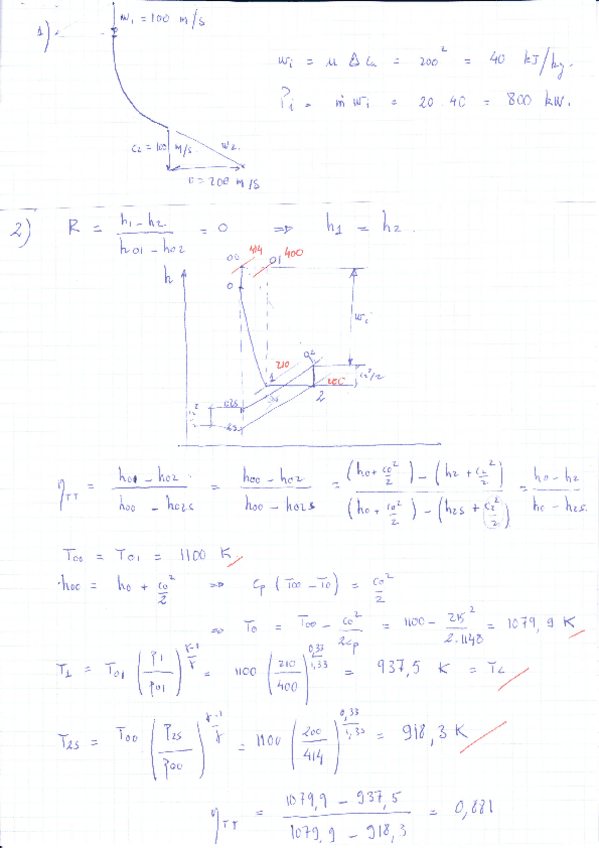 1)
w₁ = 100 m/s
wi = u Δcu = 200² = 40 kJ/kg.
Pi = ṁ wi = 20·40 = 800 kW.
c₂=100 m/s.
w₂
U=200 m/s
2) R = (h₁-h₂)/(h₀₁-h₀₂) = 0 ⇒ h₁ = h₂.
00 414 01 400
h
0
wi
210 02
1 c₂²/2
200
02s 2
2s
ηTT = (h₀₁-h₀₂)/(h₀₀-h₀₂s) = (h₀₀-h₀₂)/(h₀₀-h₀₂s) = ((h₀+c₀²/2)-(h₂+c₂²/2))/((h₀+c₀²/2)-(h₂s+c₂²/2)) = (h₀-h₂)/(h₀-h₂s)
T₀₀ = T₀₁ = 1100 K
h₀₀ = h₀ + c₀²/2 ⇒ cp (T₀₀-T₀) = c₀²/2
⇒ T₀ = T₀₀ - c₀²/2cp = 1100 - 215²/2·1148 = 1079,9 K
T₁ = T₀₁ (P₁/P₀₁)^(γ-1/γ) = 1100 (210/400)^(0,33/1,33) = 937,5 K = T₂
T₂s = T₀₀ (P₂s/P₀₀)^(γ-1/γ) = 1100 (200/414)^(0,33/1,33) = 918,3 K
ηTT = (1079,9 - 937,5)/(1079,9 - 918,3) = 0,881